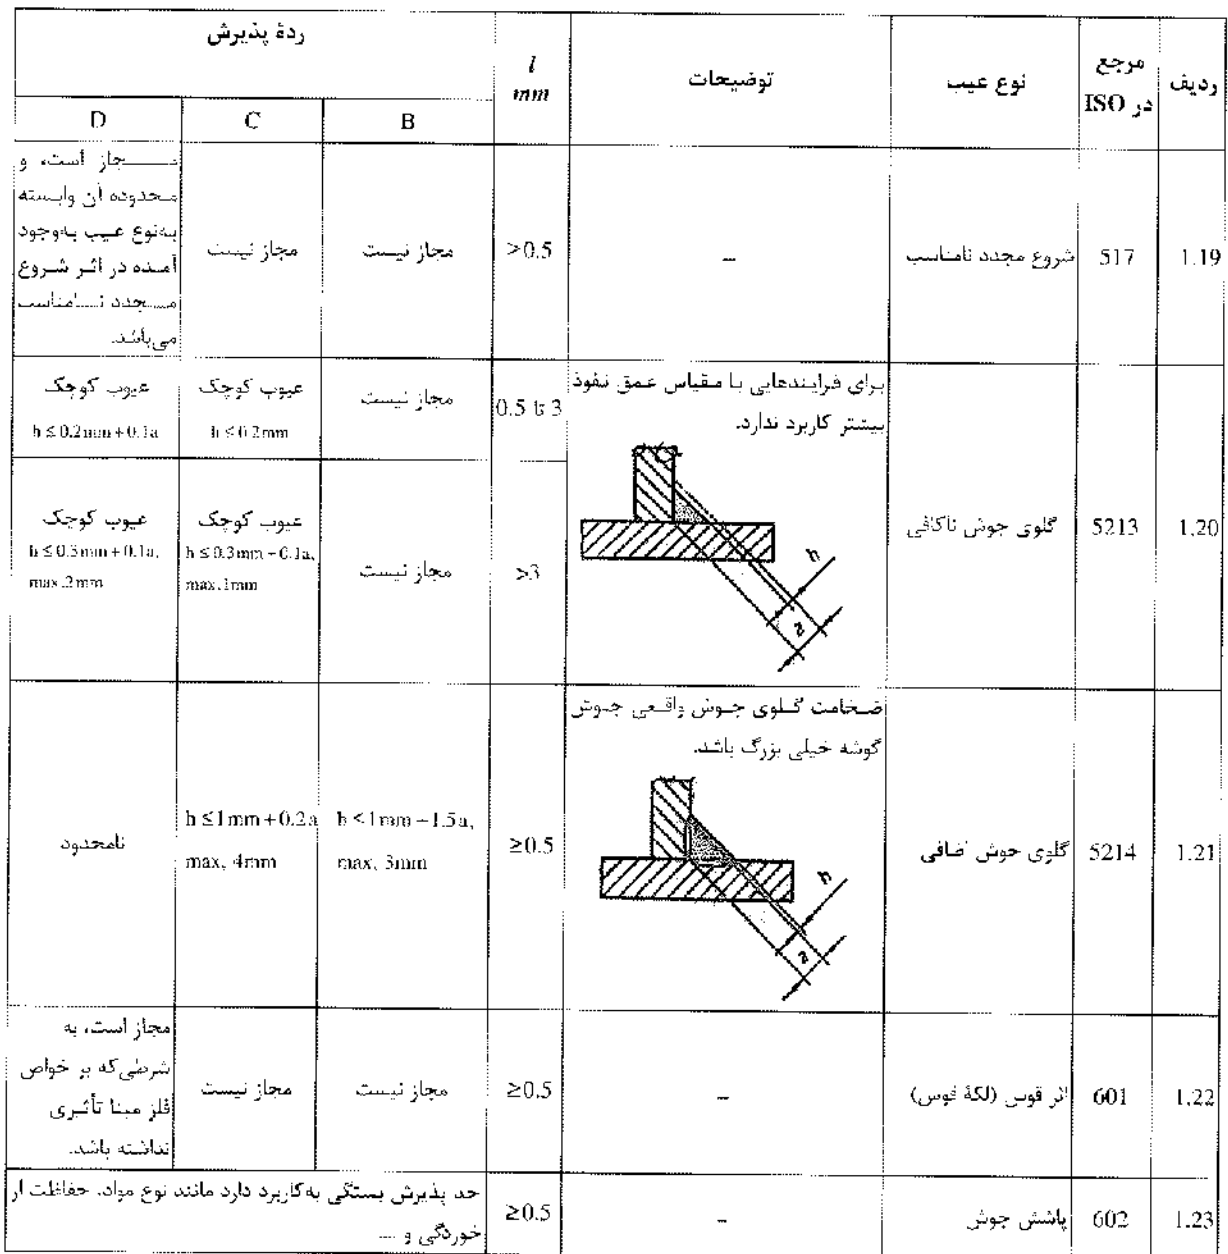 ردیف
مرجع
در ISO
نوع عیب
توضیحات
l
mm
ردهٔ پذیرش
B
C
D
1.19
517
شروع مجدد نامناسب
–
>0.5
مجاز نیست
مجاز نیست
مجاز است، و
محدوده آن وابسته
به‌نوع عیب به‌وجود
آمده در اثر شروع
مجدد نامناسب
می‌باشد.
1.20
5213
گلوی جوش ناکافی
برای فرایندهایی با مقیاس عمق نفوذ
بیشتر کاربرد ندارد.
h
a
0.5 تا 3
مجاز نیست
عیوب کوچک
h ≤ 0.2mm
عیوب کوچک
h ≤ 0.2mm + 0.1a
>3
مجاز نیست
عیوب کوچک
h ≤ 0.3mm – 0.1a,
max.1mm
عیوب کوچک
h ≤ 0.3mm + 0.1a,
max.2mm
1.21
5214
گلوی جوش اضافی
ضخامت گلوی جوش واقعی جوش
گوشه خیلی بزرگ باشد.
h
a
≥0.5
h ≤ 1mm – 1.5a,
max, 3mm
h ≤ 1mm + 0.2a
max, 4mm
نامحدود
1.22
601
اثر قوس (لکهٔ قوس)
–
≥0.5
مجاز نیست
مجاز نیست
مجاز است، به
شرطی‌که بر خواص
فلز مبنا تأثیری
نداشته باشد.
1.23
602
پاشش جوش
–
≥0.5
حد پذیرش بستگی به‌کاربرد دارد مانند نوع مواد، حفاظت از
خوردگی و ...